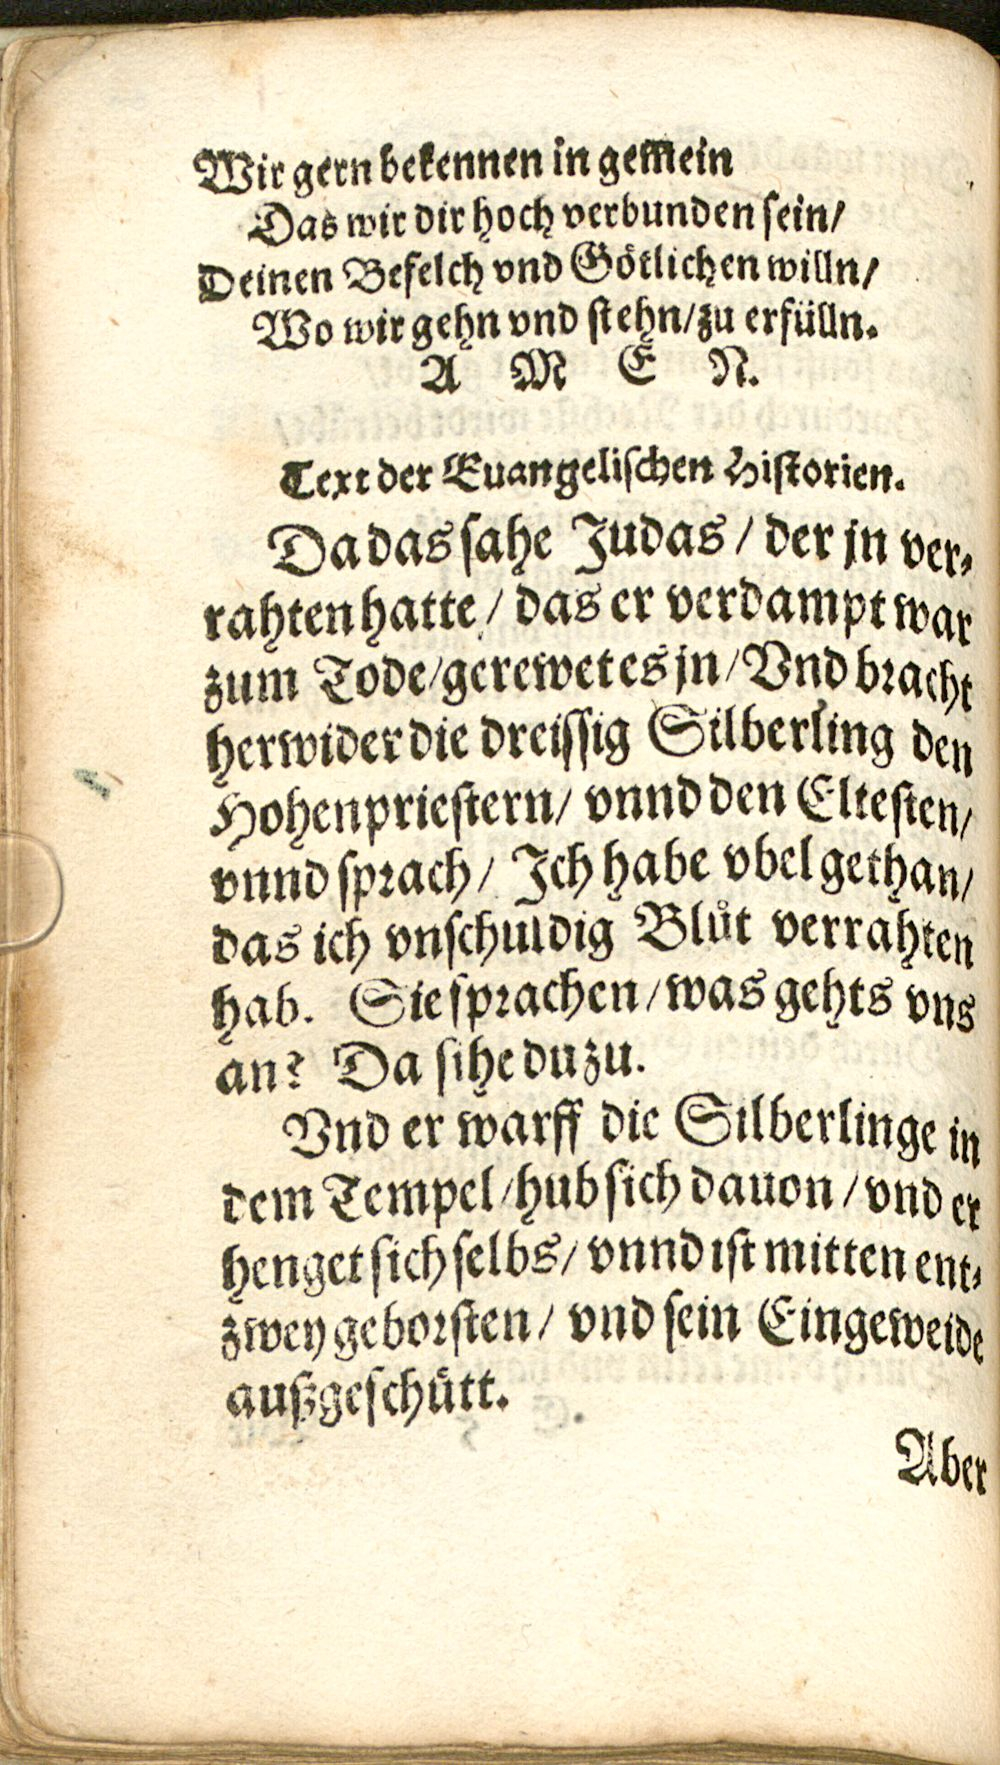 Wir gern bekennen in gemein
Das wir dir hoch verbunden sein/
Deinen Befelch vnd Götlichen willn/
Wo wir gehn vnd stehn/zu erfülln.
A M E N.
Text der Euangelischen Historien.
Da das sahe Judas / der jn ver⸗
rahten hatte / das er verdampt war
zum Tode/gerewet es jn/Vnd bracht
herwider die dreissig Silberling den
Hohenpriestern/ vnnd den Eltesten/
vnnd sprach/ Ich habe vbel gethan/
das ich vnschuldig Blůt verrahten
hab. Sie sprachen/was gehts vns
an? Da sihe du zu.
Vnd er warff die Silberlinge in
dem Tempel/hub sich dauon/vnd er
henget sich selbs/ vnnd ist mitten ent⸗
zwey geborsten/ vnd sein Eingeweide
außgeschütt.
Aber